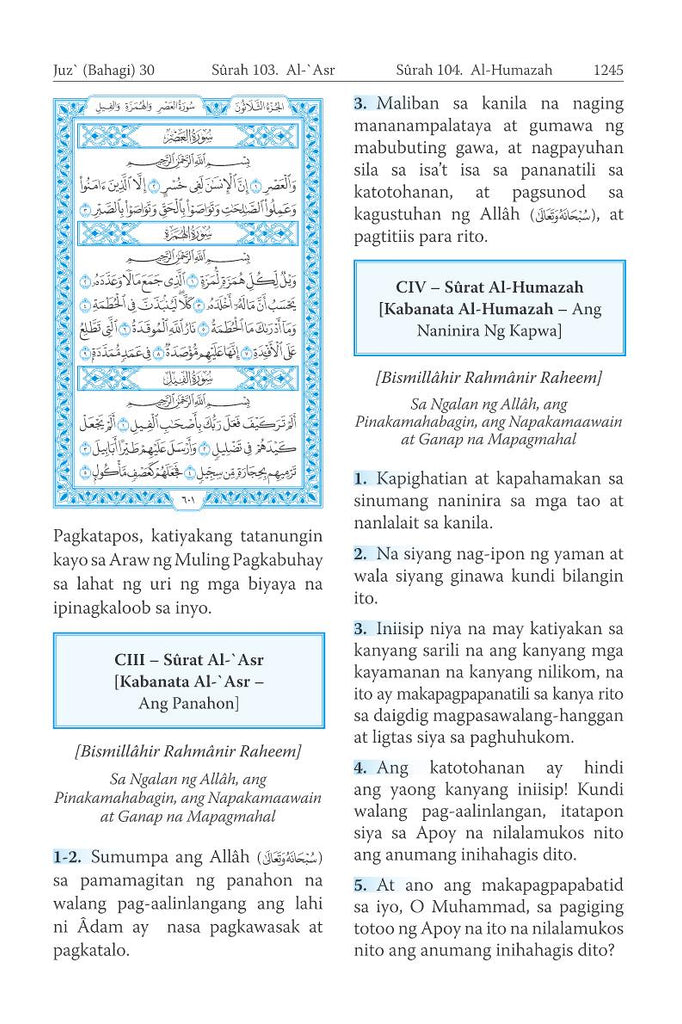 Juz` (Bahagi) 30 Sûrah 103. Al-`Asr Sûrah 104. Al-Humazah 1245
الجزء الثلاثون سورة العصر والهمزة والفيل
سورة العصر
بسم الله الرحمن الرحيم
وَٱلْعَصْرِ ١ إِنَّ ٱلْإِنسَٰنَ لَفِى خُسْرٍ ٢ إِلَّا ٱلَّذِينَ ءَامَنُوا۟
وَعَمِلُوا۟ ٱلصَّٰلِحَٰتِ وَتَوَاصَوْا۟ بِٱلْحَقِّ وَتَوَاصَوْا۟ بِٱلصَّبْرِ ٣
سورة الهمزة
بسم الله الرحمن الرحيم
وَيْلٌ لِّكُلِّ هُمَزَةٍ لُّمَزَةٍ ١ ٱلَّذِى جَمَعَ مَالًا وَعَدَّدَهُۥ ٢
يَحْسَبُ أَنَّ مَالَهُۥٓ أَخْلَدَهُۥ ٣ كَلَّا لَيُنۢبَذَنَّ فِى ٱلْحُطَمَةِ ٤
وَمَآ أَدْرَىٰكَ مَا ٱلْحُطَمَةُ ٥ نَارُ ٱللَّهِ ٱلْمُوقَدَةُ ٦ ٱلَّتِى تَطَّلِعُ
عَلَى ٱلْأَفْـِٔدَةِ ٧ إِنَّهَا عَلَيْهِم مُّؤْصَدَةٌ ٨ فِى عَمَدٍ مُّمَدَّدَةٍۭ ٩
سورة الفيل
بسم الله الرحمن الرحيم
أَلَمْ تَرَ كَيْفَ فَعَلَ رَبُّكَ بِأَصْحَٰبِ ٱلْفِيلِ ١ أَلَمْ يَجْعَلْ
كَيْدَهُمْ فِى تَضْلِيلٍ ٢ وَأَرْسَلَ عَلَيْهِمْ طَيْرًا أَبَابِيلَ ٣
تَرْمِيهِم بِحِجَارَةٍ مِّن سِجِّيلٍ ٤ فَجَعَلَهُمْ كَعَصْفٍ مَّأْكُولٍۭ ٥
٦٠١
Pagkatapos, katiyakang tatanungin
kayo sa Araw ng Muling Pagkabuhay
sa lahat ng uri ng mga biyaya na
ipinagkaloob sa inyo.
CIII – Sûrat Al-`Asr
[Kabanata Al-`Asr –
Ang Panahon]
[Bismillâhir Rahmânir Raheem]
Sa Ngalan ng Allâh, ang
Pinakamahabagin, ang Napakamaawain
at Ganap na Mapagmahal
1-2. Sumumpa ang Allâh (سُبْحَانَهُ وَتَعَالَىٰ)
sa pamamagitan ng panahon na
walang pag-aalinlangang ang lahi
ni Âdam ay nasa pagkawasak at
pagkatalo.
3. Maliban sa kanila na naging
mananampalataya at gumawa ng
mabubuting gawa, at nagpayuhan
sila sa isa’t isa sa pananatili sa
katotohanan, at pagsunod sa
kagustuhan ng Allâh (سُبْحَانَهُ وَتَعَالَىٰ), at
pagtitiis para rito.
CIV – Sûrat Al-Humazah
[Kabanata Al-Humazah – Ang
Naninira Ng Kapwa]
[Bismillâhir Rahmânir Raheem]
Sa Ngalan ng Allâh, ang
Pinakamahabagin, ang Napakamaawain
at Ganap na Mapagmahal
1. Kapighatian at kapahamakan sa
sinumang naninira sa mga tao at
nanlalait sa kanila.
2. Na siyang nag-ipon ng yaman at
wala siyang ginawa kundi bilangin
ito.
3. Iniisip niya na may katiyakan sa
kanyang sarili na ang kanyang mga
kayamanan na kanyang nilikom, na
ito ay makapagpapanatili sa kanya rito
sa daigdig magpasawalang-hanggan
at ligtas siya sa paghuhukom.
4. Ang katotohanan ay hindi
ang yaong kanyang iniisip! Kundi
walang pag-aalinlangan, itatapon
siya sa Apoy na nilalamukos nito
ang anumang inihahagis dito.
5. At ano ang makapagpapabatid
sa iyo, O Muhammad, sa pagiging
totoo ng Apoy na ito na nilalamukos
nito ang anumang inihahagis dito?